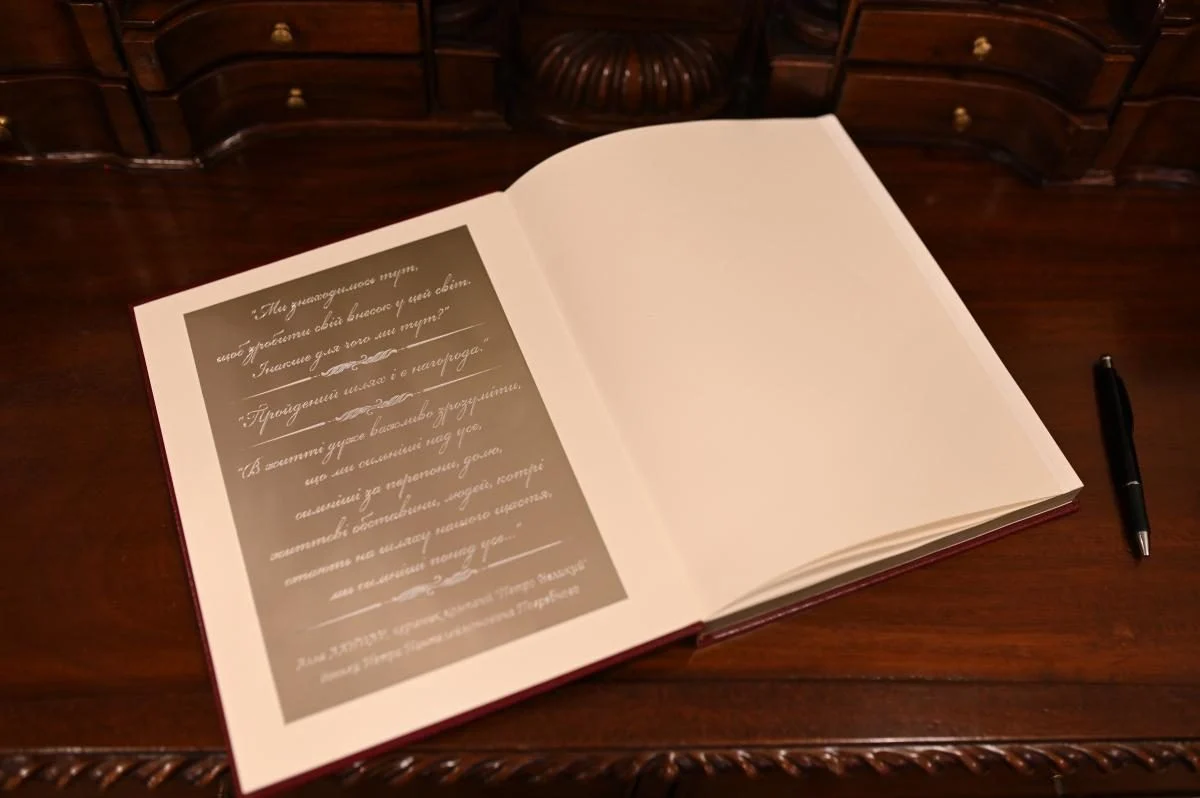 "Ми знаходимось тут,
щоб зробити свій внесок у цей світ.
Інакше для чого ми тут?"
"Пройдений шлях і є нагорода."
"В житті дуже важливо зрозуміти,
що ми сильніші над усе,
сильніші за перепони, долю,
життєві обставини, людей, котрі
стають на шляху нашого щастя,
ми сильніші понад усе..."
"Петро Великий"
Петра